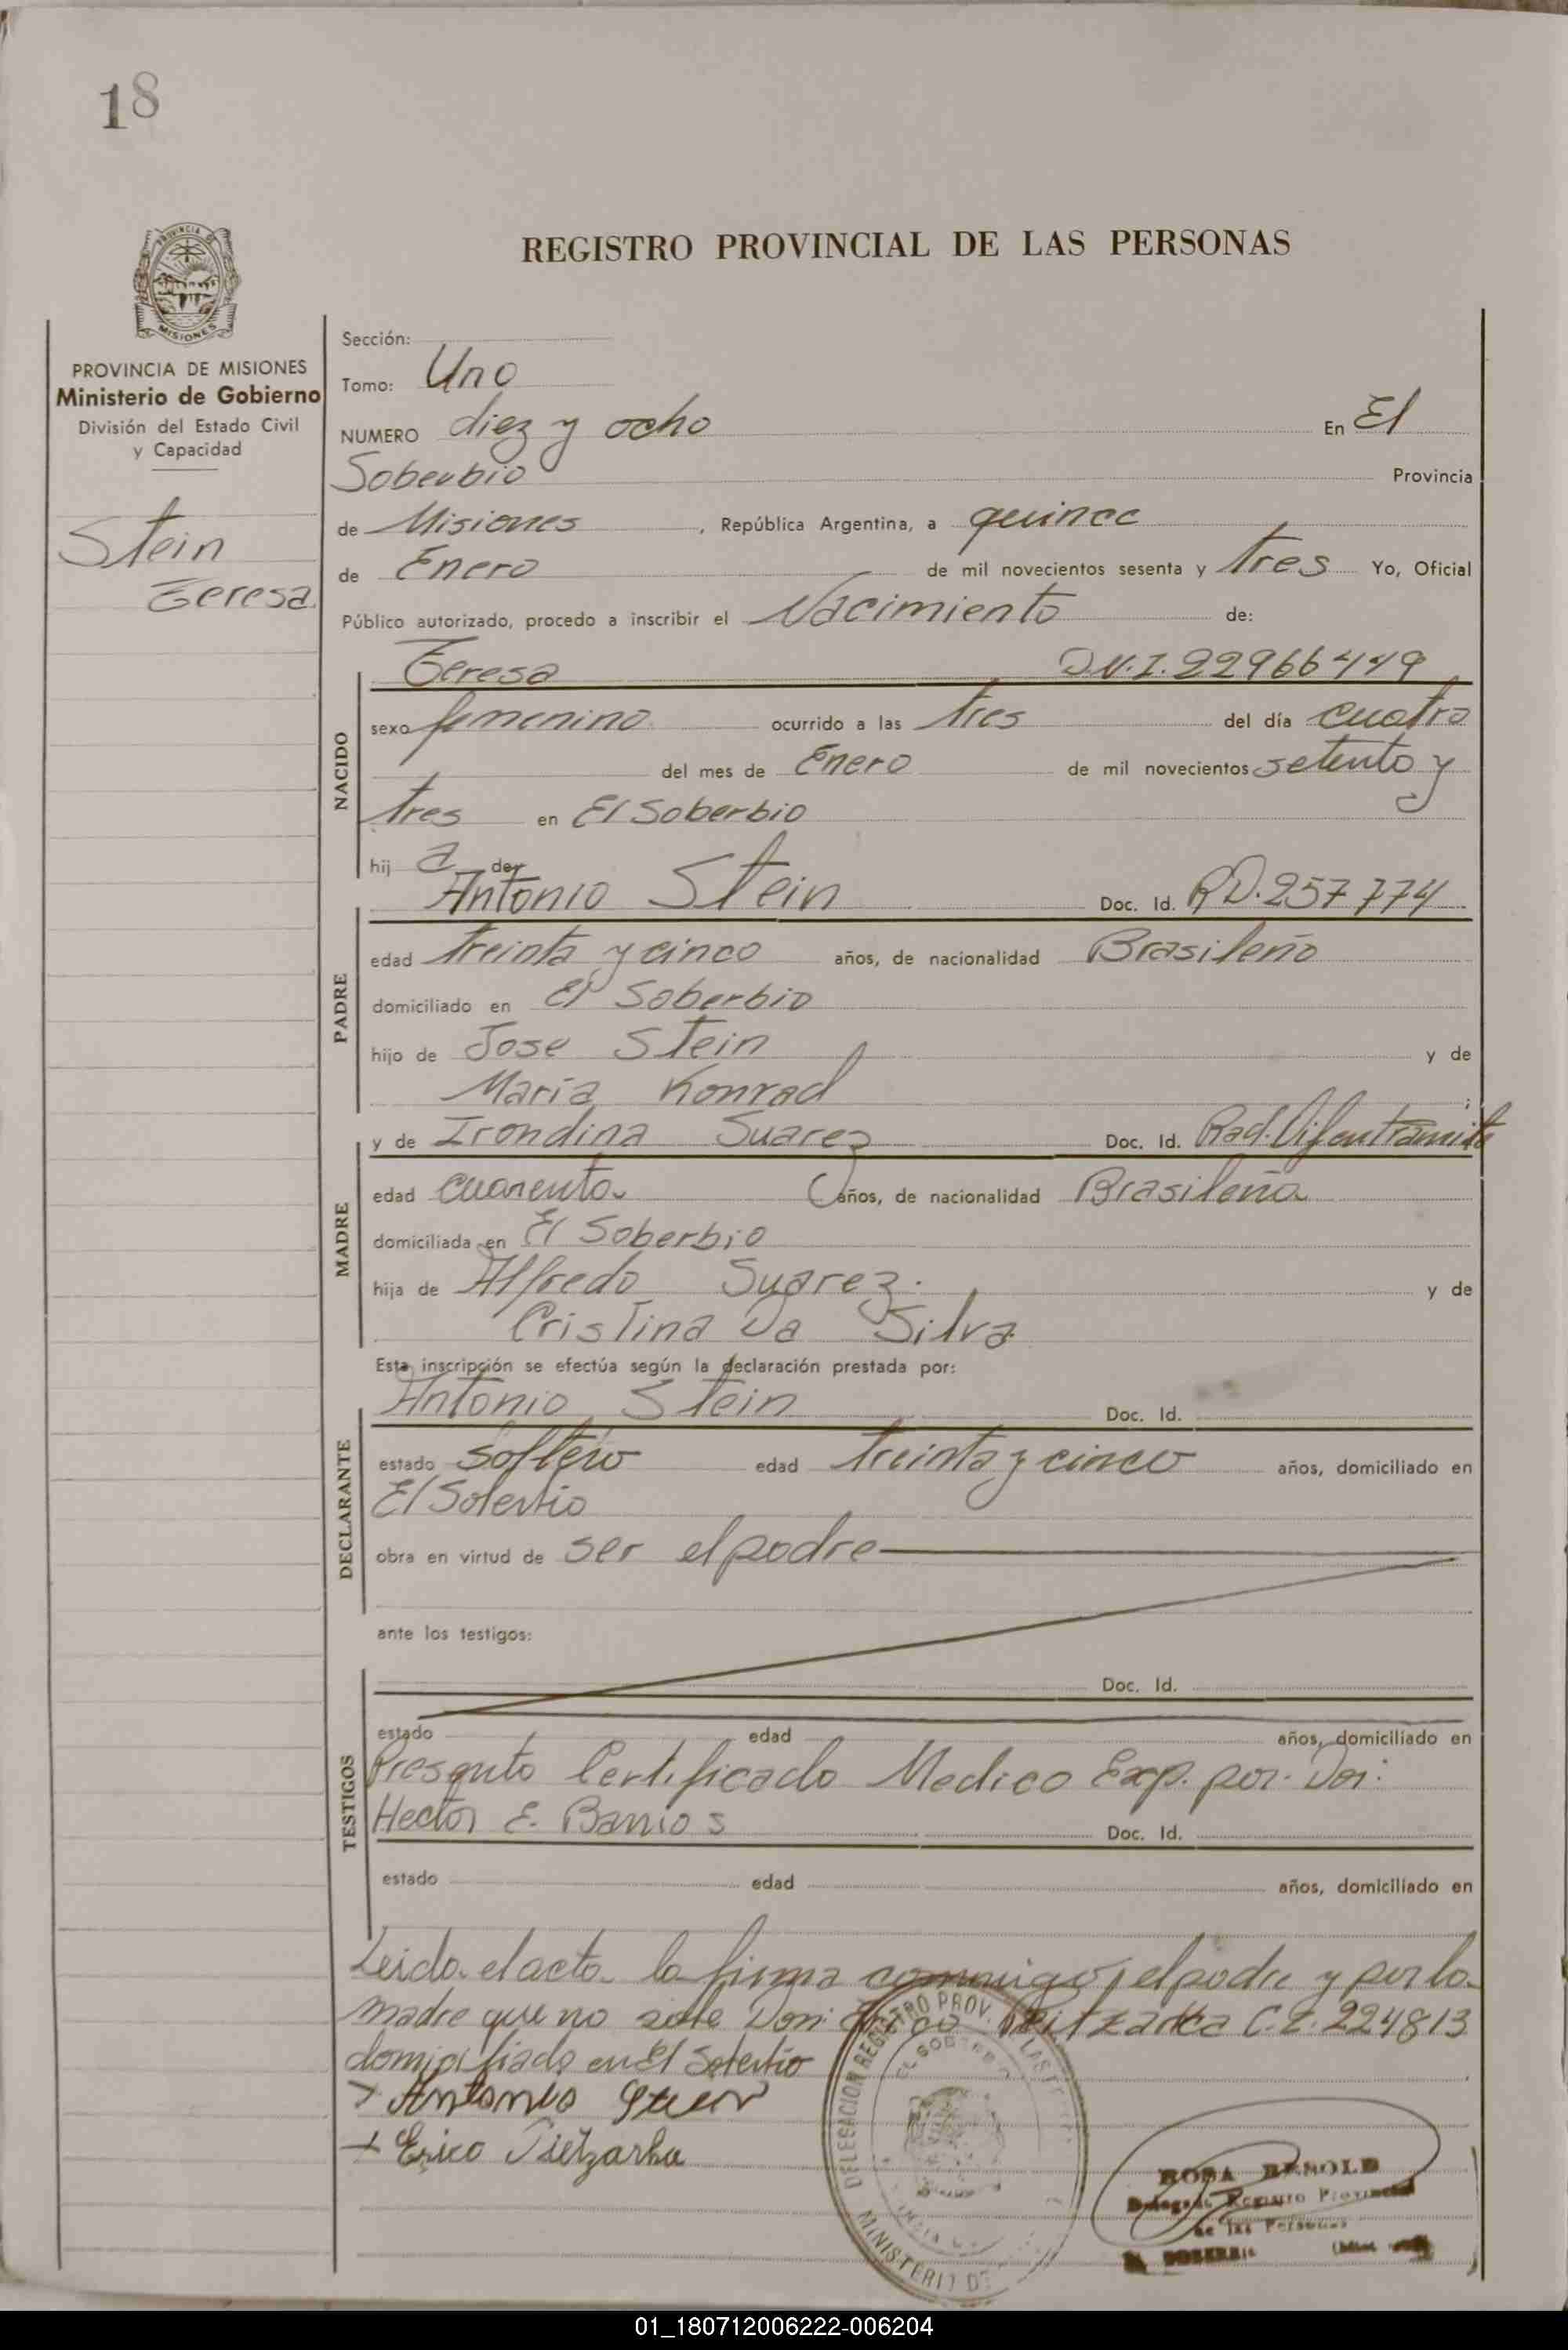 18
REGISTRO PROVINCIAL DE LAS PERSONAS
PROVINCIA DE
MISIONES
PROVINCIA DE MISIONES
Ministerio de Gobierno
División del Estado Civil
y Capacidad
Stein
Teresa
Sección:
Tomo: Uno
NUMERO diez y ocho En El
Soberbio Provincia
de Misiones, República Argentina, a quince
de Enero de mil novecientos sesenta y tres Yo, Oficial
Público autorizado, procedo a inscribir el Nacimiento de:
Teresa D.N.I. 22966449
NACIDO
sexo femenino ocurrido a las tres del día cuatro
del mes de Enero de mil novecientos setenta y
tres en El Soberbio
hij a de
Antonio Stein Doc. Id. RD.257774
PADRE
edad treinta y cinco años, de nacionalidad Brasileño
domiciliado en El Soberbio
hijo de Jose Stein y de
Maria Konrad ;
y de Irondina Suarez Doc. Id.
MADRE
edad cuarenta años, de nacionalidad Brasileña
domiciliada en El Soberbio
hija de Alfredo Suarez. y de
Cristina Da Silva
Esta inscripción se efectúa según la declaración prestada por:
Antonio Stein Doc. Id.
DECLARANTE
estado Soltero edad treinta y cinco años, domiciliado en
El Soberbio
obra en virtud de ser el padre
ante los testigos:
Doc. Id.
TESTIGOS
estado edad años, domiciliado en
Presento Certificado Medico Exp. por. Don:
Hector E. Barrios Doc. Id.
estado edad años, domiciliado en
Leida el acta la firma conmigo, el padre y por la
madre que no sabe Don: Erico Pietzarka C.I. 224813
domiciliado en El Soberbio
Antonio
Erico Pietzarka
DELEGACION REGISTRO PROV. LAS
EL SOBERBIO
MINISTERIO DE
ROSA BESOLD
Delegada Registro Provincial
de las Personas
SOBERBIO
01_180712006222-006204